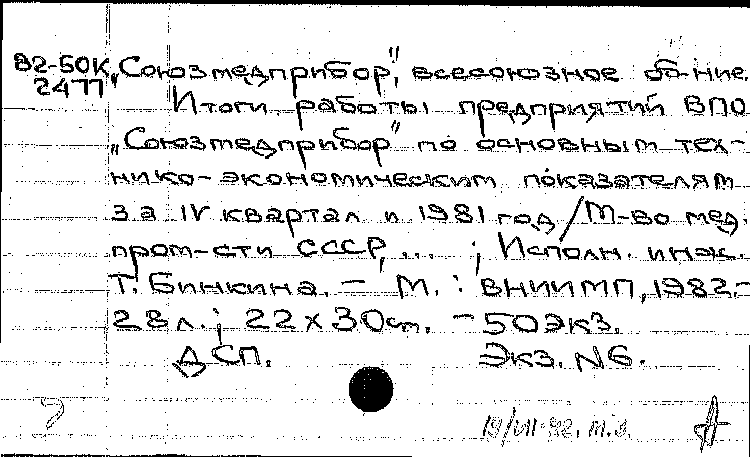 В2-50К „Союзмедприбор“, всесоюзное об-ние.
2477
Итоги работы предприятий ВПО
„Союзмедприбор“ по основным тех-
нико-экономическим показателям
за IV квартал и 1981 год / М-во мед.
пром-сти СССР, ... ; Исполн. инж.
Т. Бинкина. – М. : ВНИИМП, 1982.-
28 л.; 22 х 30 см. – 50 экз.
ДСП. Экз. N6.
19/VII-82.